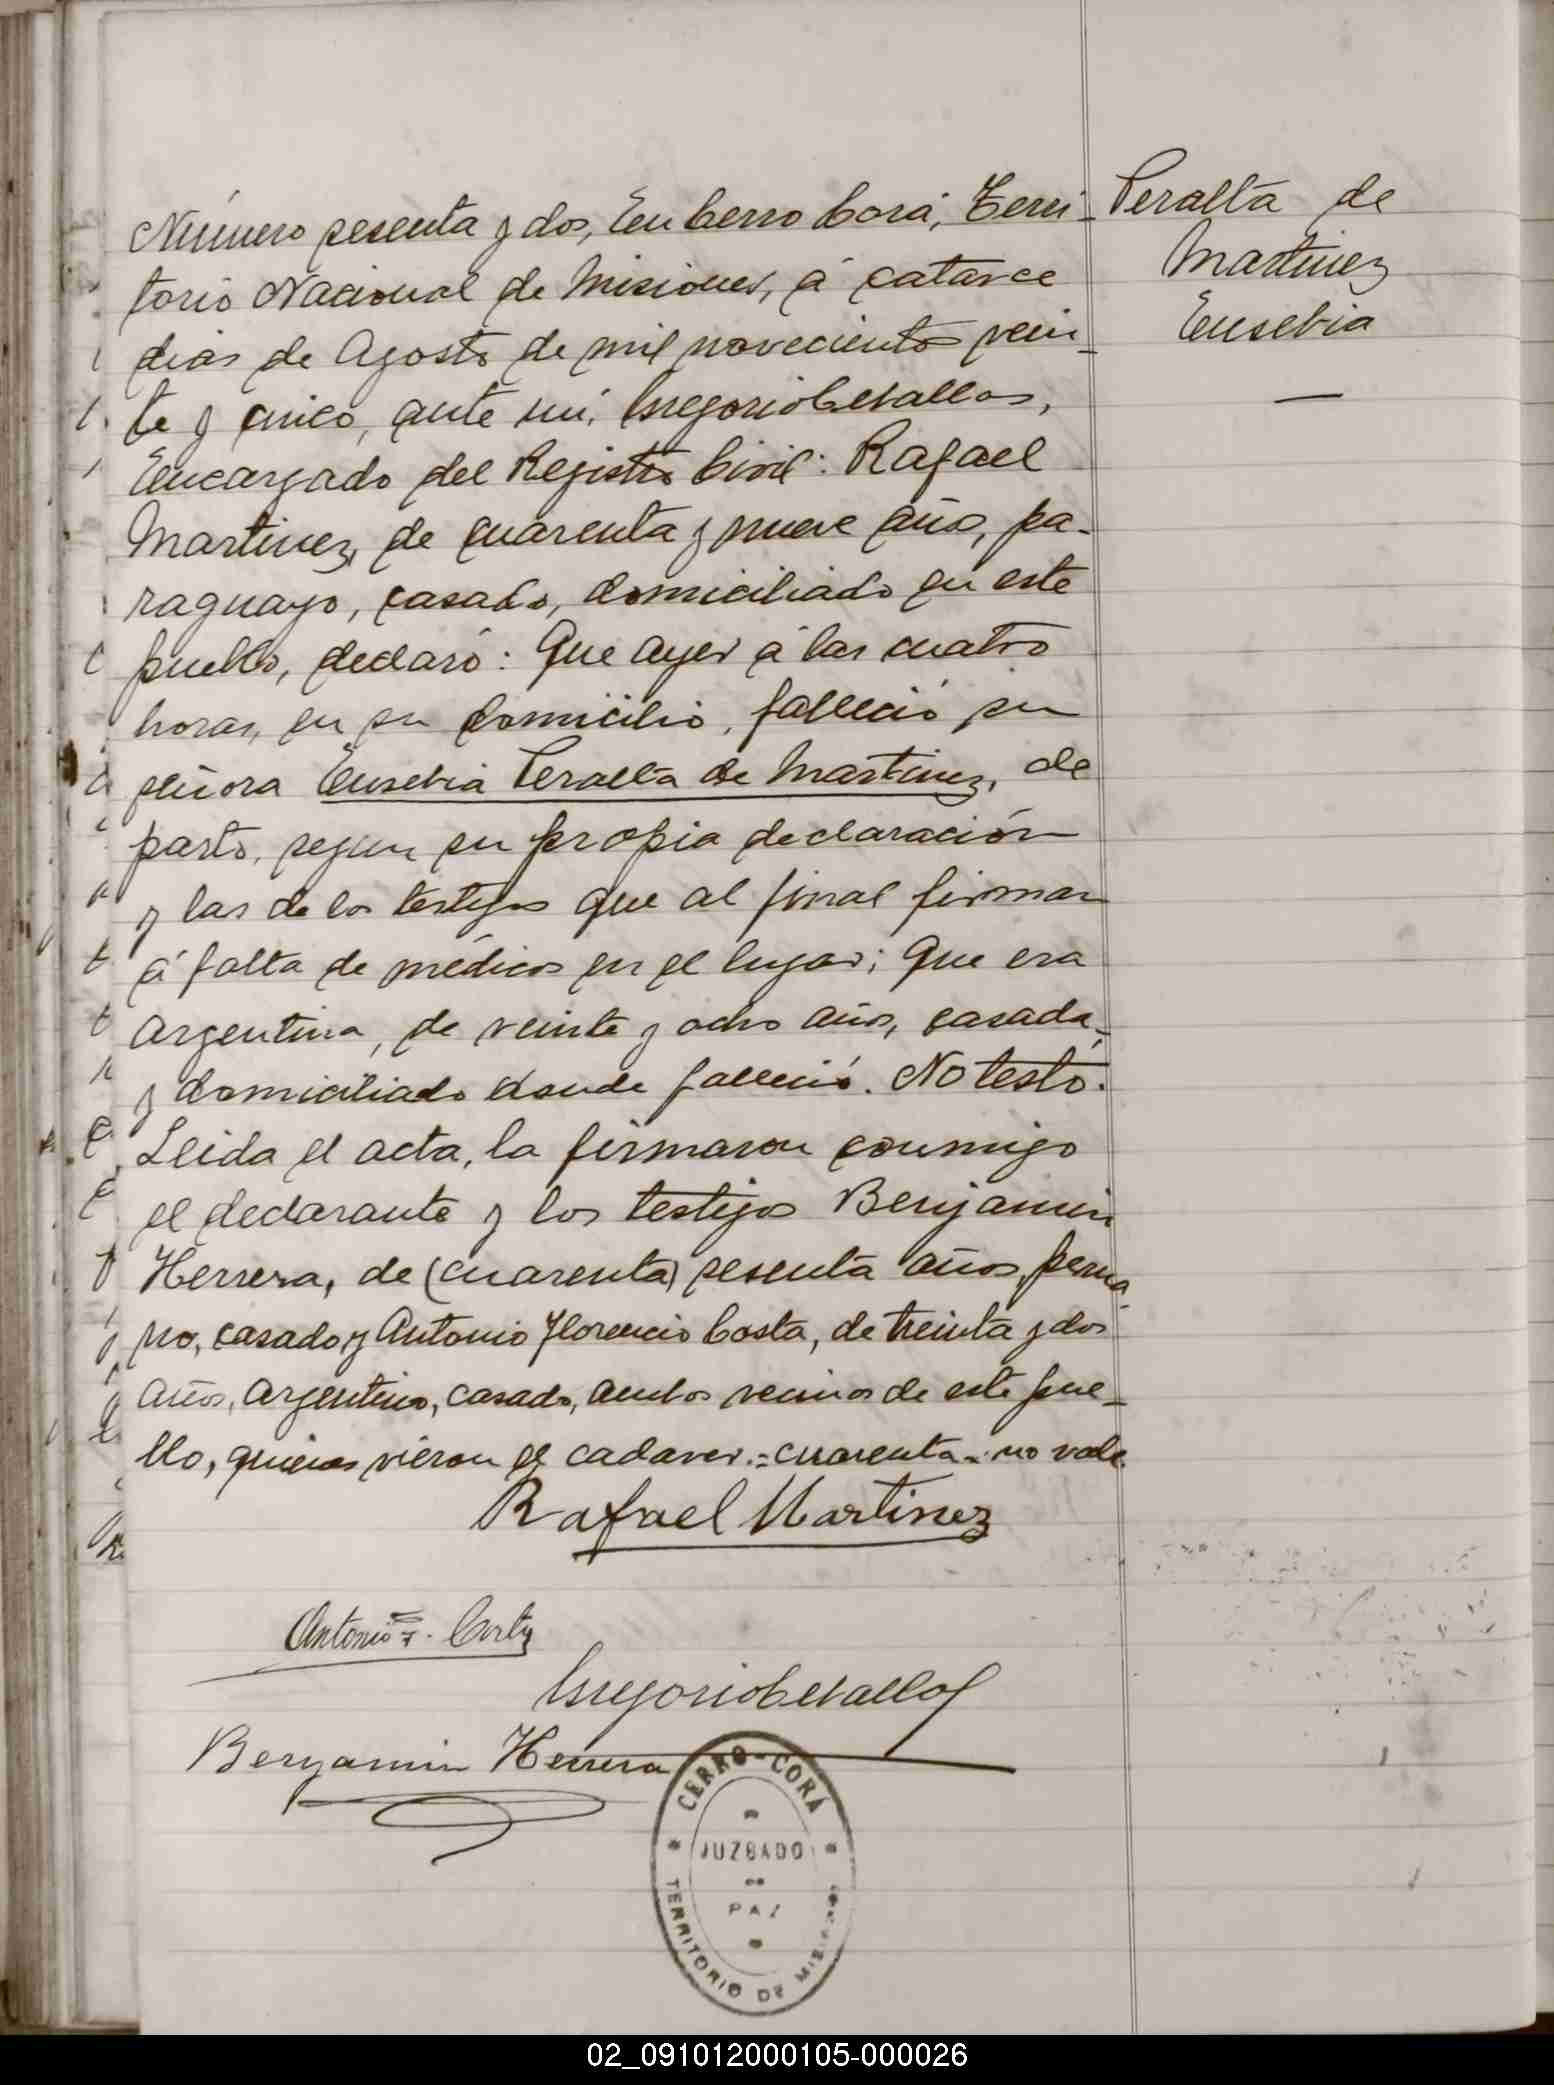 Número sesenta y dos, En Cerro Corá, Terri-
torio Nacional de Misiones, á catorce
dias de Agosto de mil novecientos vein-
te y cinco, ante mí, Gregorio Cevallos,
Encargado del Registro Civil: Rafael
Martinez, de cuarenta y nueve años, pa-
raguayo, casado, domiciliado en este
pueblo, declaró: Que ayer á las cuatro
horas, en su domicilio, falleció su
señora Eusebia Peralta de Martinez, de
parto, segun su propia declaración
y las de los testigos que al final firman
á falta de médicos en el lugar; Que era
Argentina, de veinte y ocho años, casada,
y domiciliado donde falleció. No testó.
Leida el acta, la firmaron conmigo
el declarante y los testigos Benjamin
Herrera, de (cuarenta) sesenta años, perua-
no, casado y Antonio Florencio Costa, de treinta y dos
años, Argentino, casado, ambos vecinos de este pue-
blo, quienes vieron el cadaver.=cuarenta=no vale.
Peralta de
Martinez
Eusebia
Rafael Martinez
Antonio F. Costa
Gregorio Cevallos
Benjamin Herrera
CERRO-CORÁ
JUZGADO
DE
PAZ
TERRITORIO DE MISIONES
02_091012000105-000026